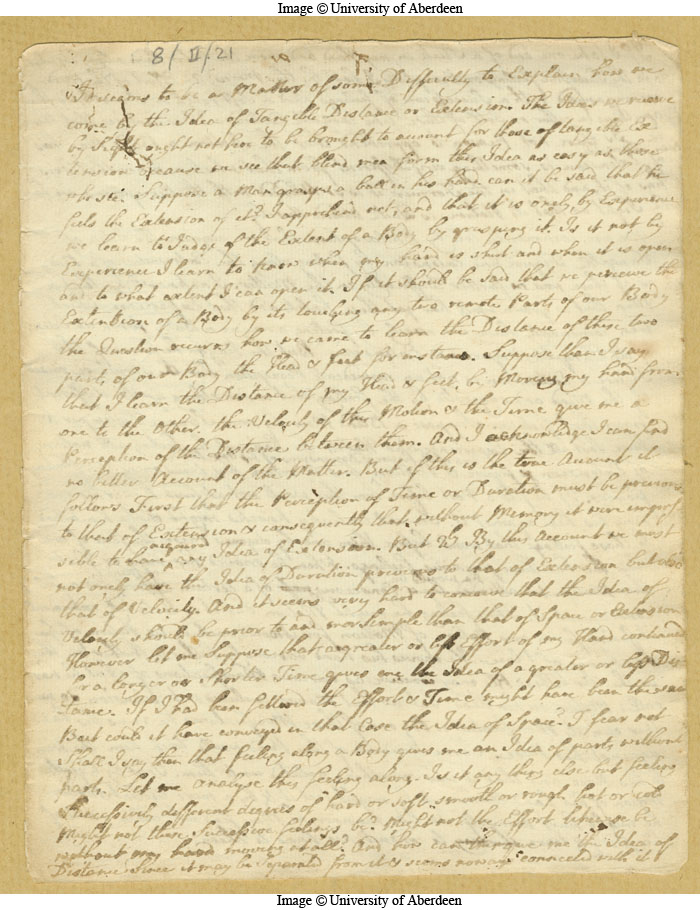 Image © University of Aberdeen
8/II/21
It seems to be a Matter of some Difficulty to Explain how we
come by the Idea of Tangible Distance or Extension. The Ideas we receive
by Sight ought not here to be brought to account for those of tangible Ex
tension because we see that blind men form this Idea as easy as those
who see. Suppose a Man grasps a ball in his hand can it be said that he
feels the Extension of it? I apprehend not, and that it is onely by Experience
we learn to Judge of the Extent of a Body by grasping it. Is it not by
Experience I learn to know when my hand is shut and when it is open
and to what extent I can open it. If it should be said that we perceive the
Extension of a Body by its touching any two remote Parts of our Body
the Question recurs how we came to learn the Distance of these two
parts of our Body the Head & feet for instance. Suppose than I say
that I learn the Distance of my Head & feet, by Moving my hand from
one to the Other. the Velocity of this Motion & the Time give me a
Perception of the Distance between them. And I acknowledge I can find
no better Account of the Matter. But if this is the true Account it
follows First that the Perception of Time or Duration must be previous
to that of Extension & consequently that without Memory it were impos
sible to have acquired any Idea of Extension. But By this Account we must
not onely have the Idea of Duration previous to that of Extension but also
that of Velocity. And it seems very hard to conceive that the Idea of
Velocity should be prior to and more simple than that of Space or Extension
However let me Suppose that a greater or less Effort of my Hand continued
for a longer or Shorter Time gives me the Idea of a greater or less Dis
tance. If I had been fettered the Effort & Time might have been the same
But could it have conveyed in that Case the Idea of Space. I fear not
Shall I say than that feeling along a Body gives me an Idea of parts without
parts. Let me analyse this feeling along. Is it any thing else but feeling
Successively different degrees of hard or soft smooth or rough hot or cold
Might not these Successive feelings be? Might not the Effort likewise be
without my hand moving at all? And how can than give me the Idea of
Distance Since it may be separated from it & seems noways connected with it
Image © University of Aberdeen